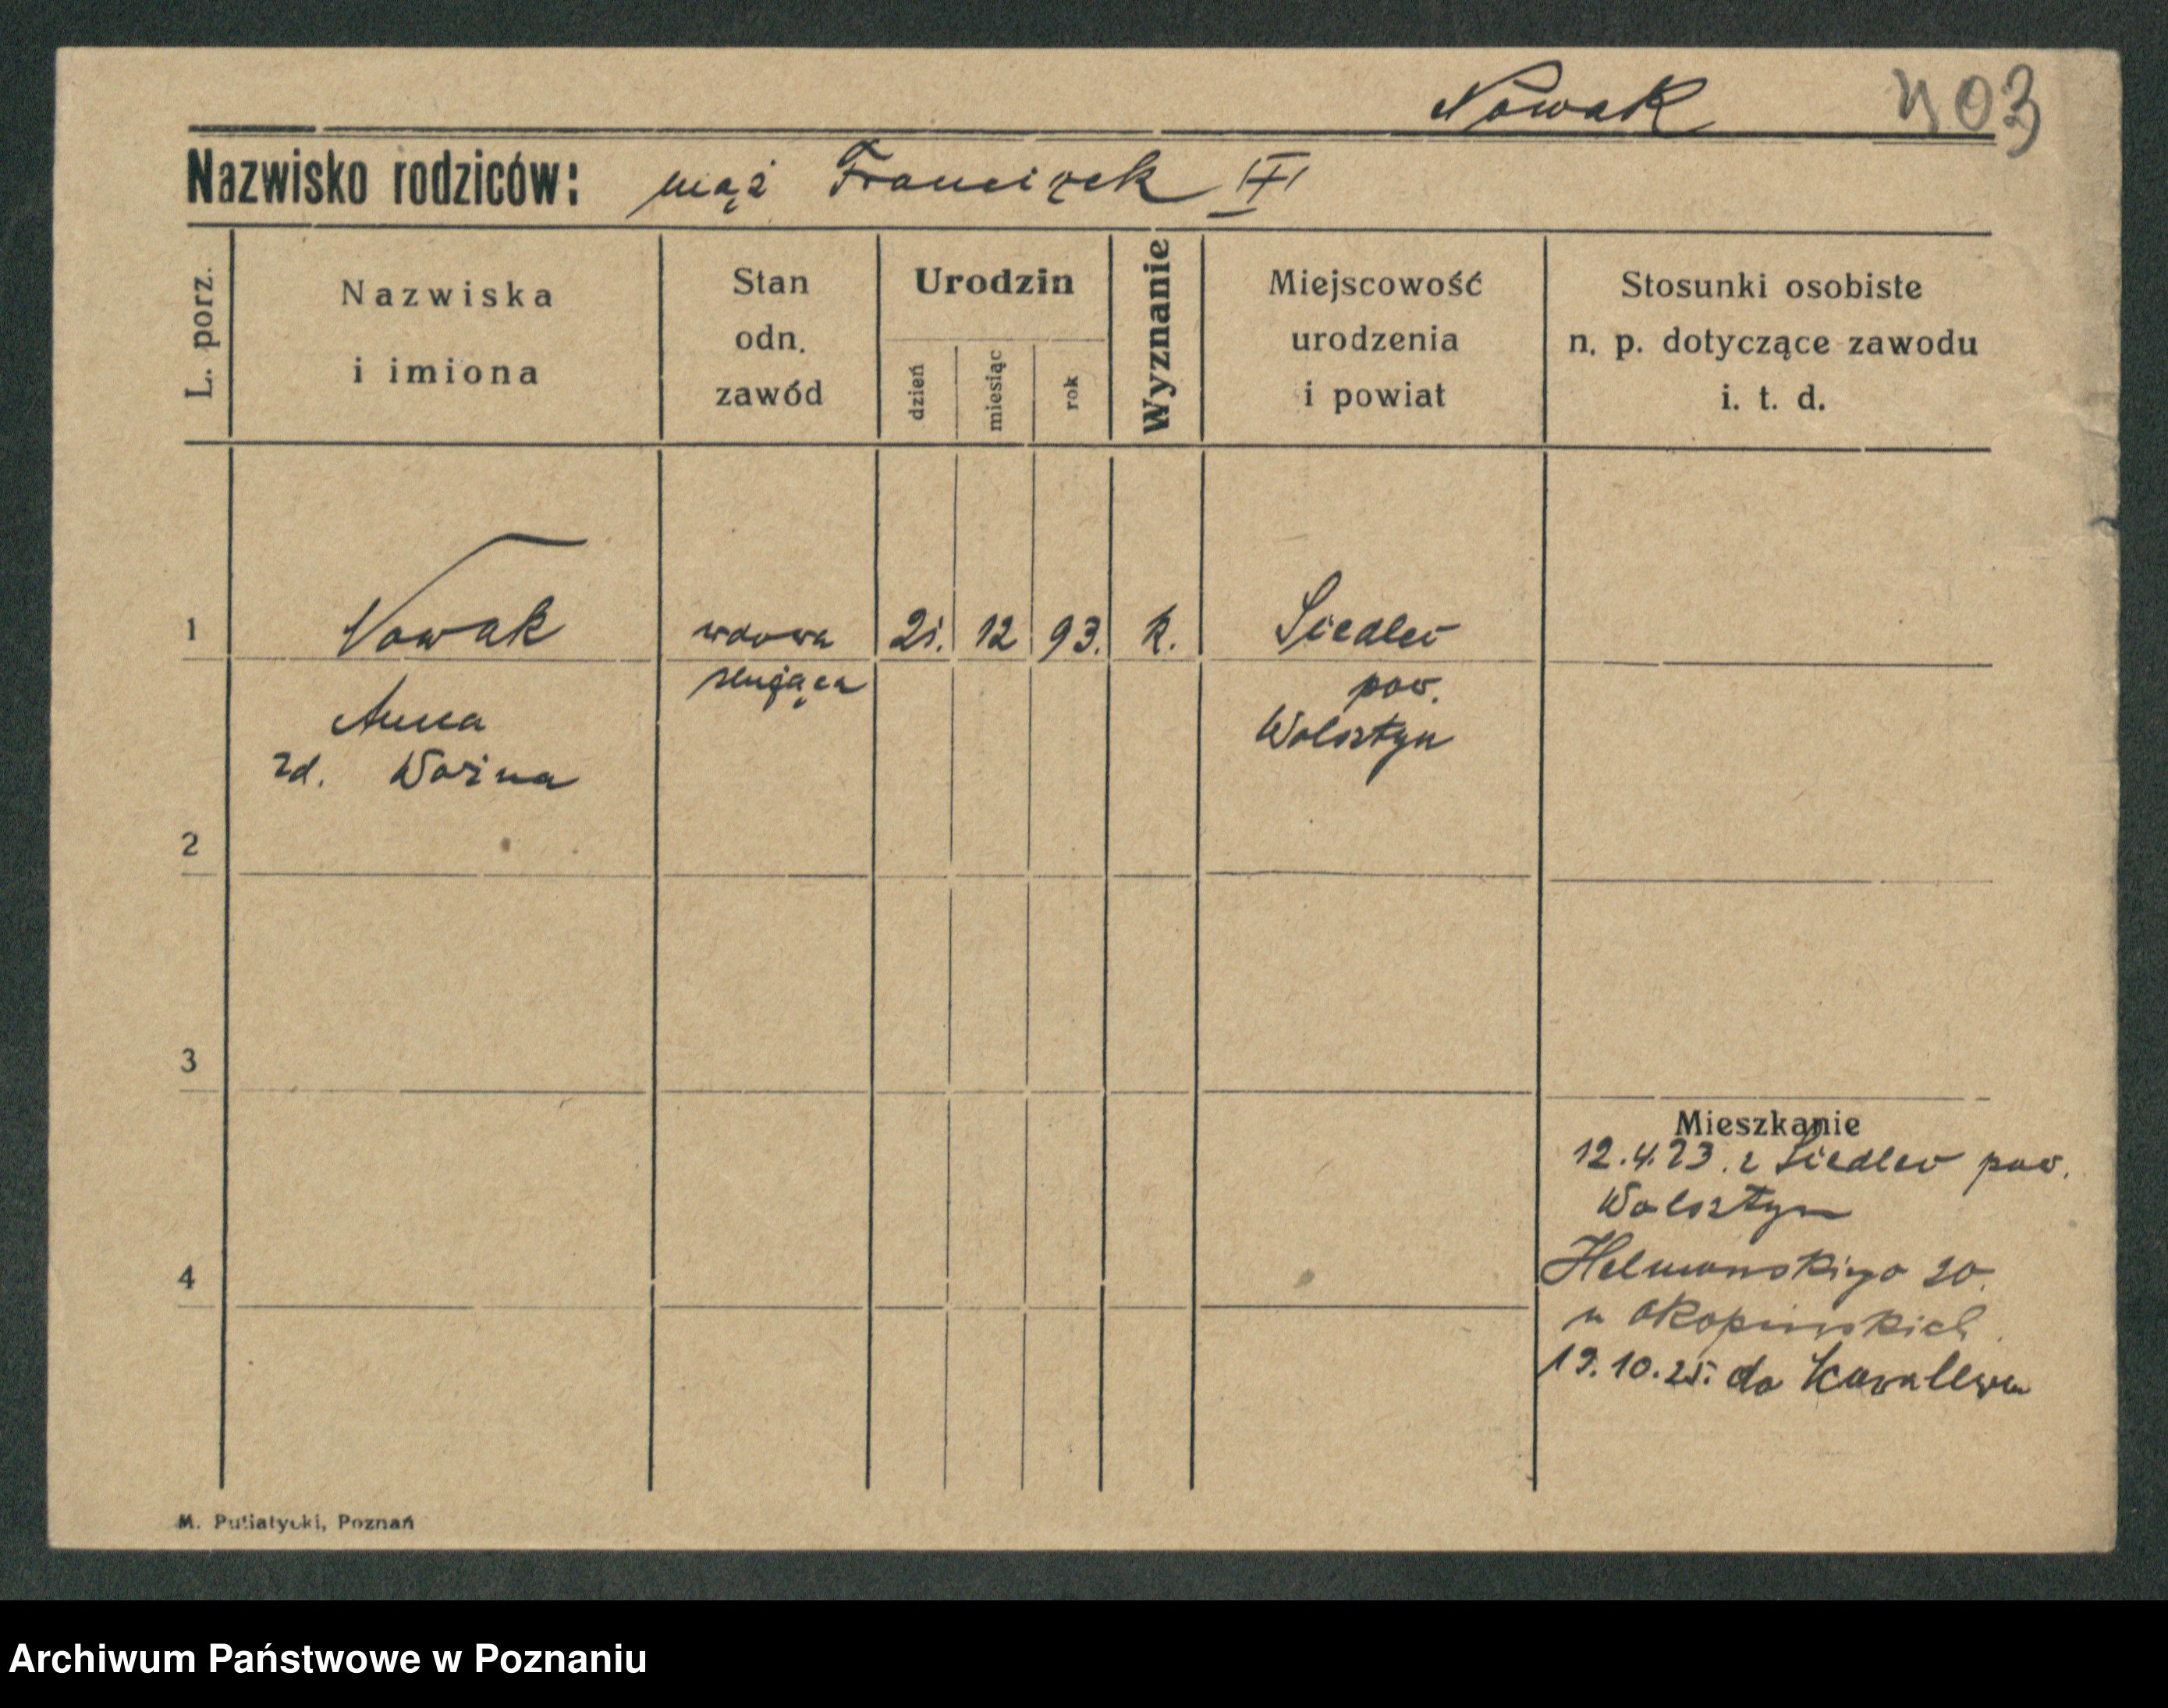 Nowak 403
Nazwisko rodziców: mąż Franciszek †
L. porz.
Nazwiska
i imiona
Stan
odn.
zawód
Urodzin
dzień
miesiąc
rok
Wyznanie
Miejscowość
urodzenia
i powiat
Stosunki osobiste
n. p. dotyczące zawodu
i. t. d.
1 Nowak wdowa 21. 12 93. k. Siedlec
służąca pow.
Anna Wolsztyn
zd. Woźna
2
3
Mieszkanie
12.4.23. z Siedlec pow.
Wolsztyn
4
20.
u Okopińskich
19.10.25. do Kowalewa
M. Putiatycki, Poznań
Archiwum Państwowe w Poznaniu